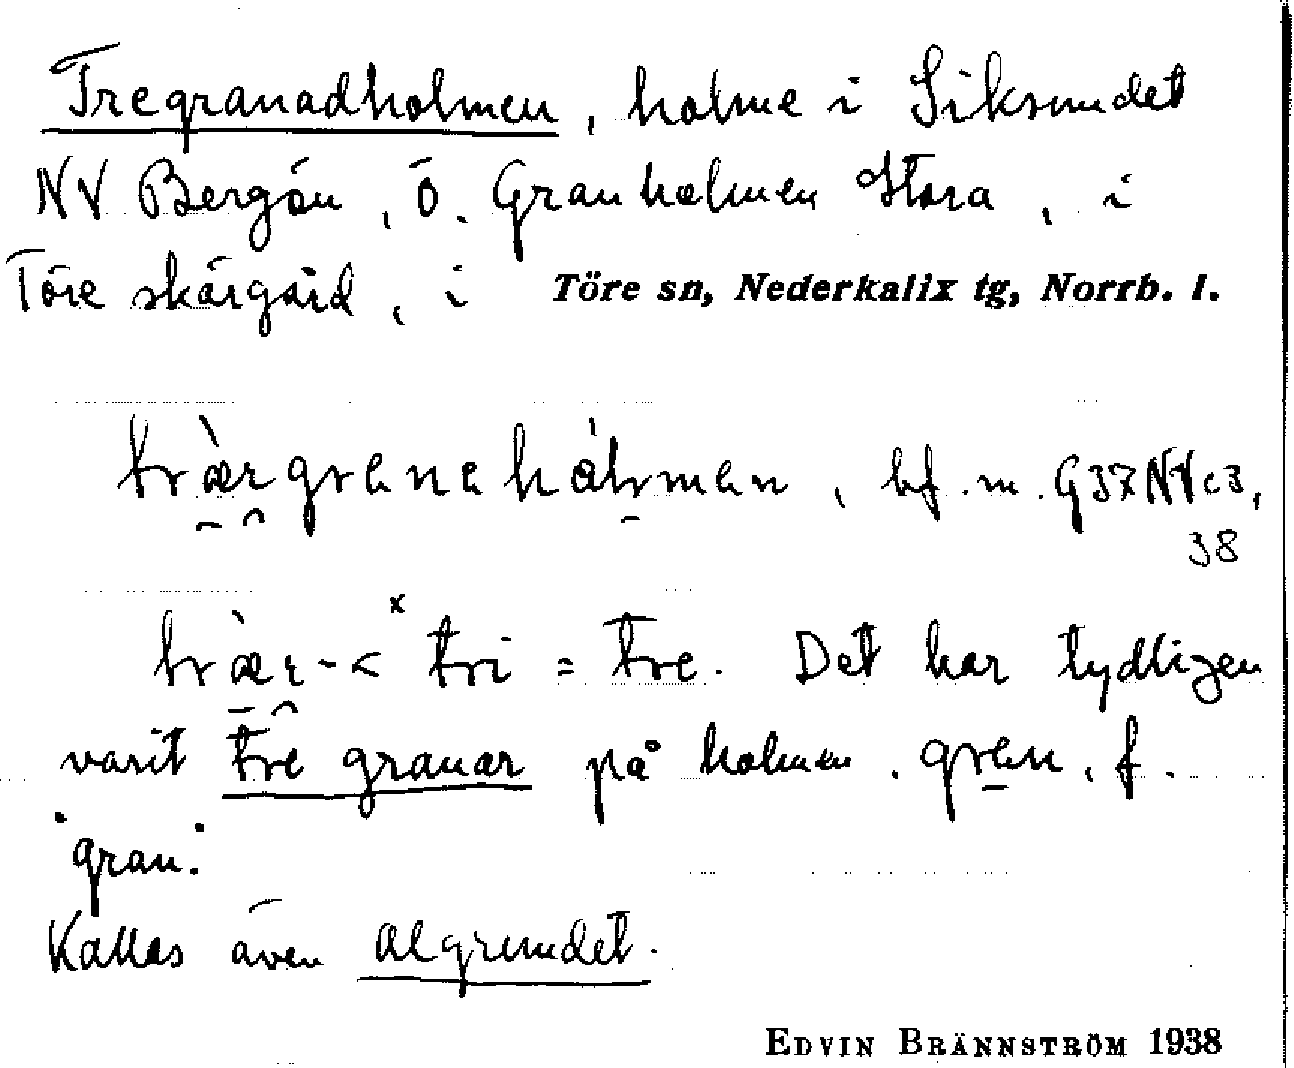 Tregranadholmen, holme i Siksundet
NV Bergön, ö. Granholmen Stora, i
Töre skärgård, i Töre sn, Nederkalix tg, Norrb. l.
bf. m. G37NVc3,
38
< ˣtri = tre. Det har tydligen
varit tre granar på holmen. gran, f.
"gran."
Kallas även algrundet.
EDVIN BRÄNNSTRÖM 1938